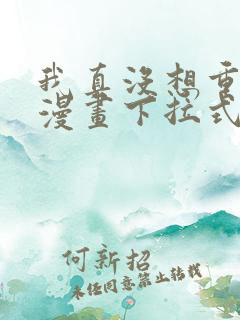 我真没想重
漫畫下拉式
何新招
未任同意禁止转载